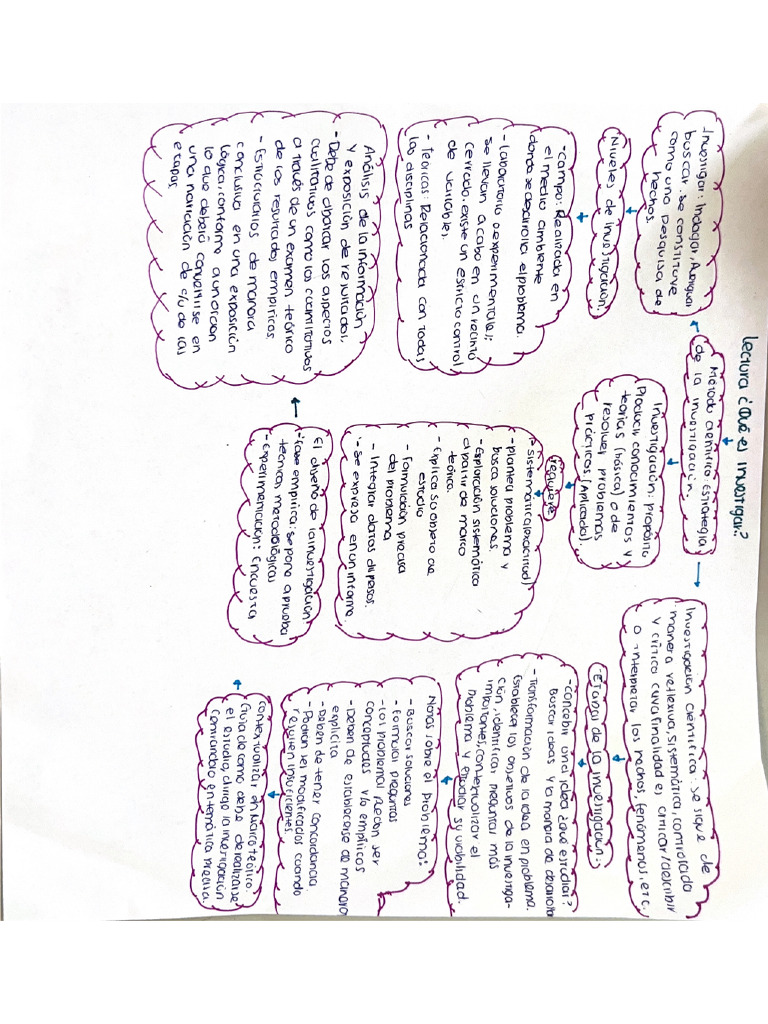 Lectura ¿Qué es investigar?
Método científico: Estrategia
de la investigación.
Investigar: Indagar, Averiguar
buscar. Se constituye
como una pesquisa de
hechos.
Niveles de investigación:
-Campo: Realizada en
el medio ambiente
donde se desarrolla el problema.
-Laboratorio o experimentales:
se llevan a cabo en un recinto
cerrado, existe un estricto control
de variables.
- Teóricas: Relacionada con todas
las disciplinas
Investigación: propósito
Producir conocimientos y
teorías (básica) o de
resolver problemas
prácticos (Aplicada)
requiere
sistematiz (exactitud)
-plantea problema y
busca soluciones.
-Exploración sistemática
a partir de marco
teórico.
- Explica su objeto de
estudio
- Formulación precisa
del problema
- Integrar datos dispesos.
- Se expresa en un informe
Investigación científica: Se sigue de
manera reflexiva, sistemática, controlada
y crítica cuya finalidad es
o interpretar los hechos, fenómenos, etc.
Etapas de la investigación:
-Concebir una idea ¿Qué estudias?
Buscar ideas y la manera de desarrollar
-Transformación de la idea en problema.
Establece los objetivos de la investiga-
ción, identificar preguntas más
importantes, contextualizar el
problema y estudiar su viabilidad.
Notas sobre el problema:
- Buscar soluciones
- Formular preguntas
- Los problemas Pueden ser
conceptuales y/o empíricos
- Deben de establecerse de manera
explícita
- Deben de tener concordancia
- Podrán ser modificados cuando
resulten insuficientes.
contextualizar en Marco teórico:
Guía de como debe de realizarse
el estudio, dirige la investigación
centrandolo en temática precisa.
El diseño de la investigación:
-fase empírica: se pone a prueba
técnicas metodológicas
-Experimentación: Encuesta
Análisis de la información
y exposición de resultados.
- Debe de abarcar los aspectos
cualitativos como los cuantitativos
a través de un examen teórico
de los resultados empíricos
- Estructurarlos de manera
conclusiva en una exposición
lógica conforme a un orden
lo que deberá convertirse en
una narración de c/u de las
etapas